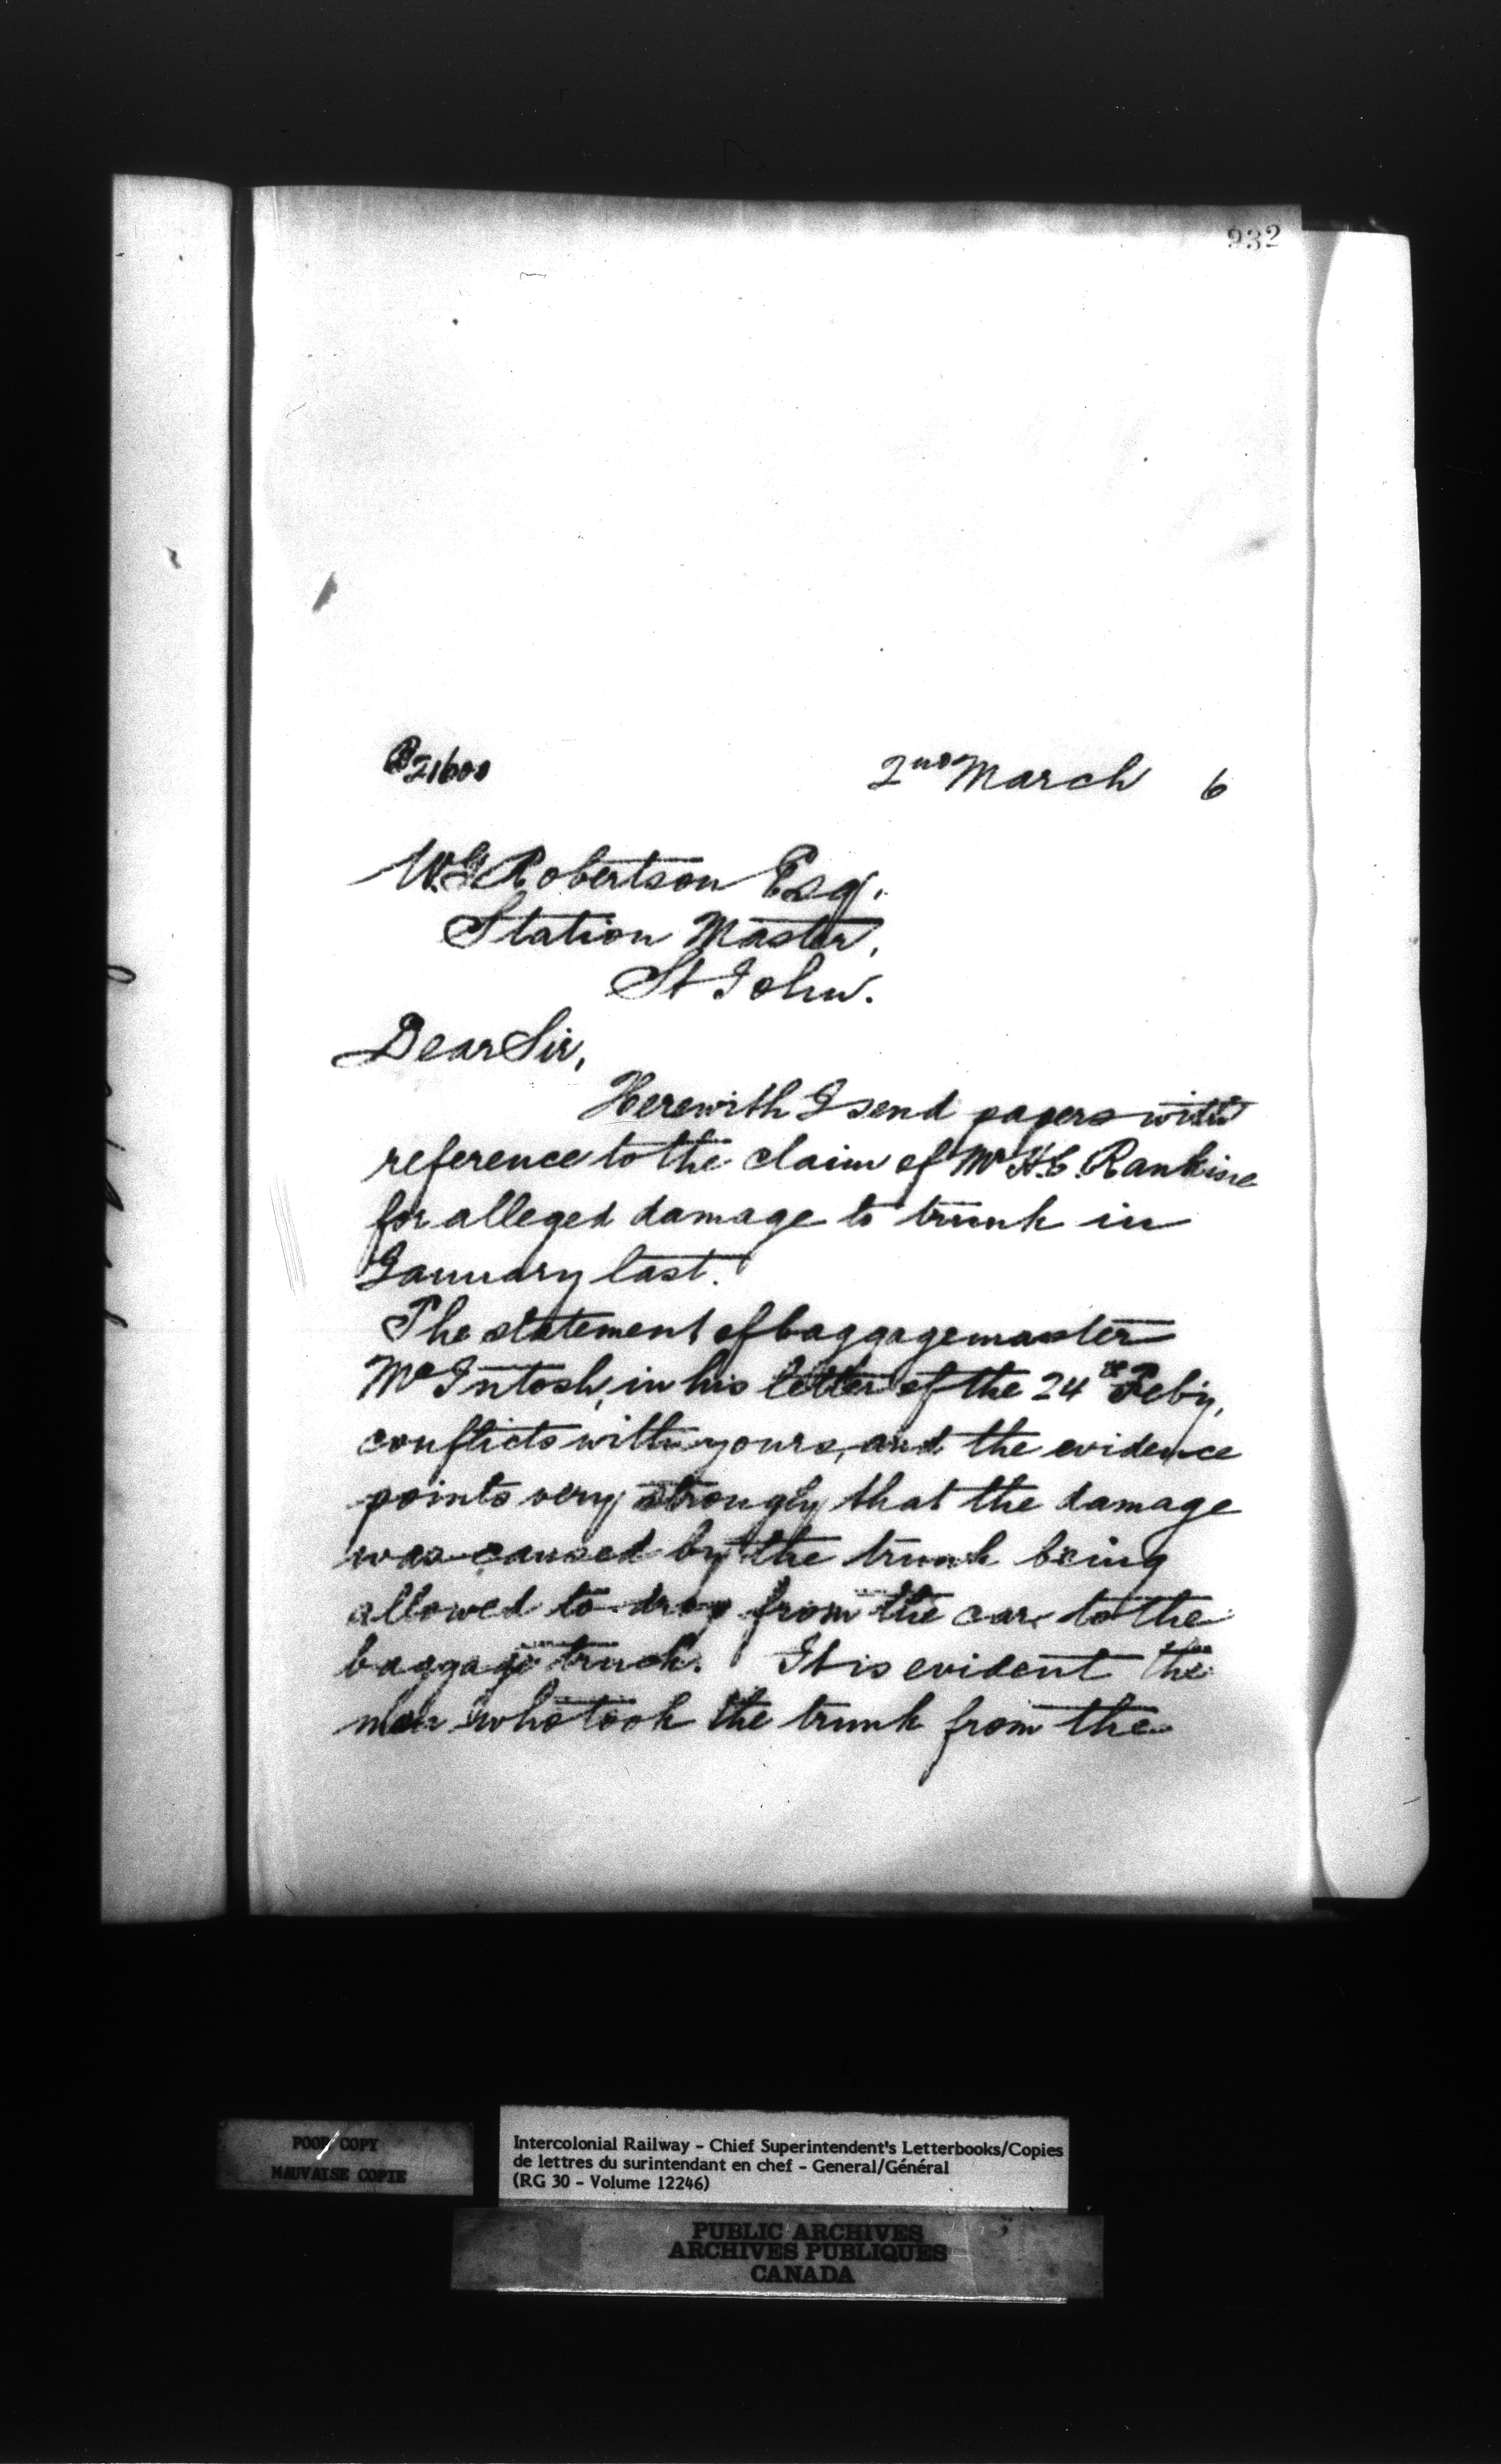 932
21600
2nd March 6
W.G Robertson Esq.
Station Master,
St John.
Dear Sir,
Herewith I send papers with
reference to the claim of Mr H.C. Rankine
for alleged damage to trunk in
January last.
The statement of baggagemaster
McIntosh, in his letter of the 24th Feby,
conflicts with yours, and the evidence
points very strongly that the damage
was caused by the trunk being
allowed to drop from the car to the
baggage truck. It is evident the
men who took the trunk from the
POOR COPY
MAUVAISE COPIE
Intercolonial Railway - Chief Superintendent's Letterbooks/Copies
de lettres du surintendant en chef - General/Général
(RG 30 - Volume 12246)
PUBLIC ARCHIVES
ARCHIVES PUBLIQUES
CANADA